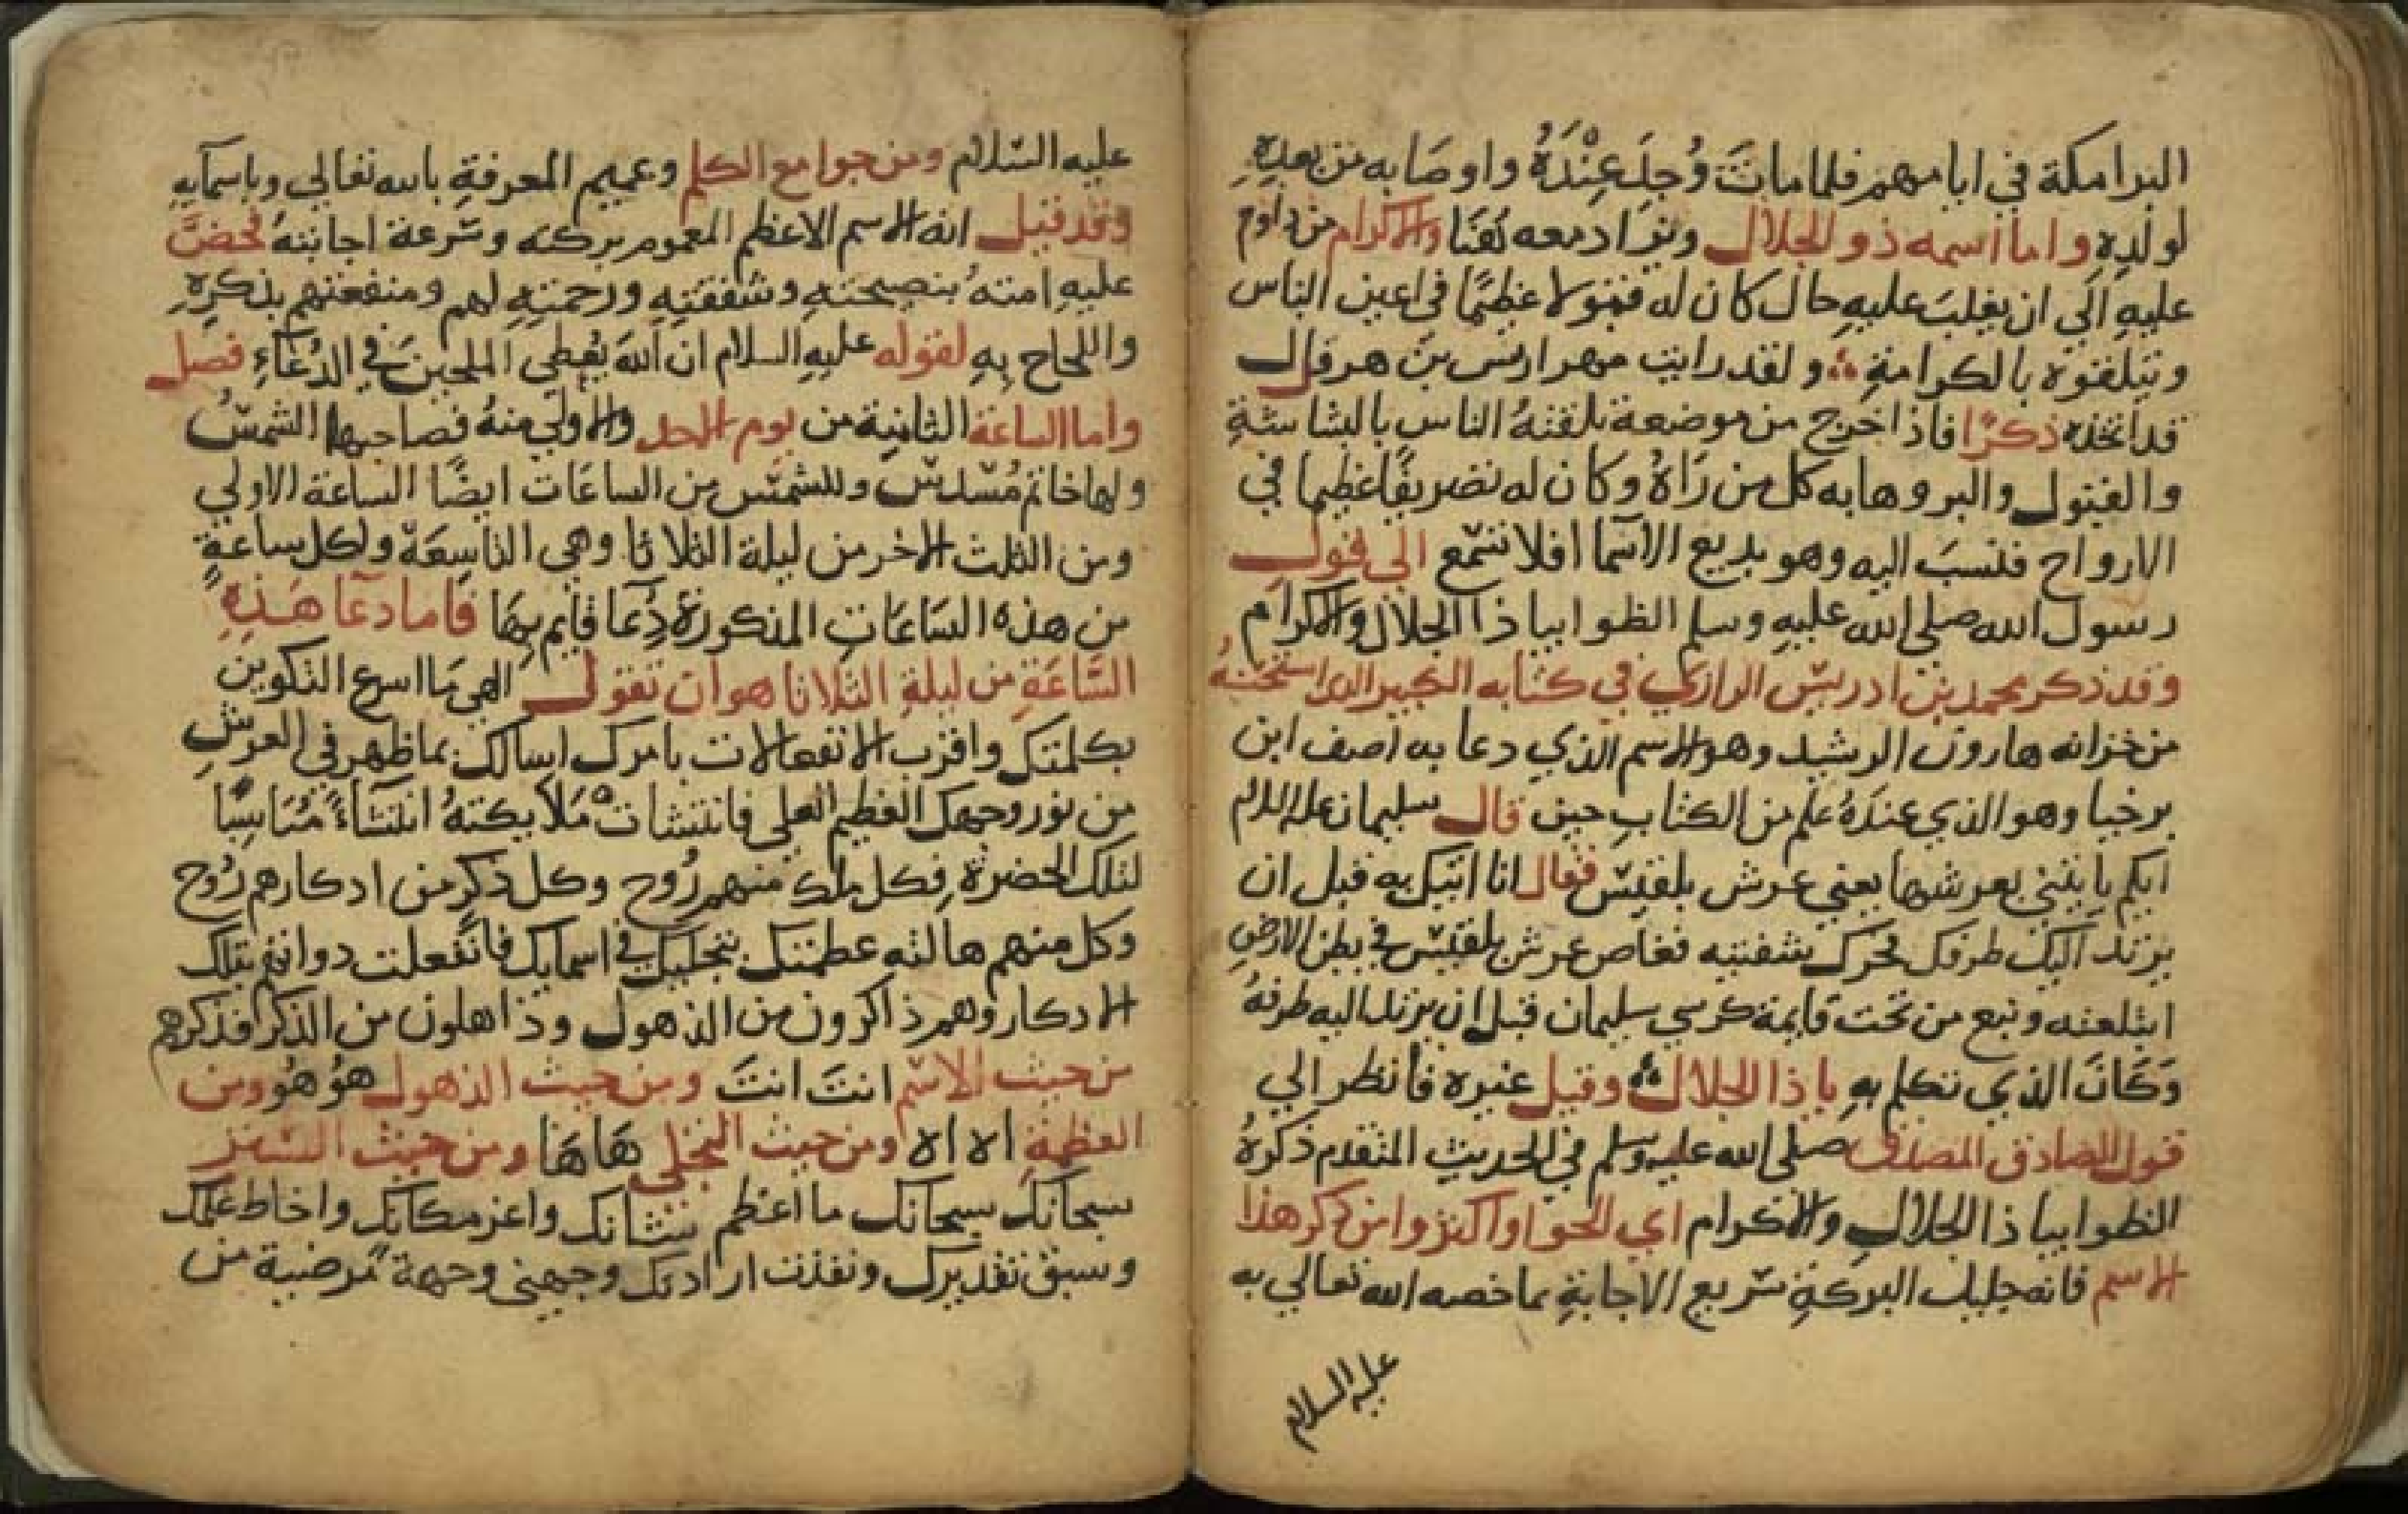 البرامكة في ايامهم فلما مات وُجِدَ عِنْدَهُ واوصَا به من بعدِهِ
لولدِهِ واما اسمه ذو الجلال ويزاد معه نَعْتًا والاكرام من داوم
عليهِ الي ان يغلبَ عليهِ حال كان له قبولا عظيمًا في اعين الناس
ويتلقوه بالكرامةِ ولقد رايت مهراريس بن هرقال
قد اتخذه ذكرًا فاذا خرج من موضعه تلقتهُ الناس بالبشاشةِ
والقبول والبر وهابه كل من رَاهُ وكان له تصريفًا عظيما في
الارواح فنسبَ اليه وهو بديع الاسما افلا تسمع الي قول
رسول الله صلي الله عليهِ وسلم الظوا بيا ذا الجلال والاكرام
وقد ذكر محمد بن ادريس الرازي في كتابه الكبير الذي استخرجهُ
من خزانه هارون الرشيد وهو الاسم الذي دعا به اصف ابن
برخيا وهو الذي عندَهُ علم من الكتابِ حين قال سليمان عليه السلام
ايكم ياتيني بعرشها يعني عرش بلقيس فقال انا اتيك به قبل ان
يرتد اليك طرفك فحرك شفتيه فغاص عرش بلقيس في بطن الارضِ
ابتلعته ونبع من تحت قايمة كرسي سليمان قبل ان يرتد اليه طرفهُ
وَكَانَ الذي تكلم بهِ يا ذا الجلال وقيل غيره فانظر الي
قول الصادق المصدق صلي الله عليه وسلم في الحديثِ المتقدم ذكرهُ
الظوا بيا ذا الجلالِ والاكرام اي الحوا واكثروا من ذكر هذا
الاسم فانه جليل البركةِ سريع الاجابةِ بما خصه الله تعالي به
عليه السلام
عليه السّلام ومن جوامع الكلم وعميم المعرفةِ بالله تعالي وباسمآيهِ
وقد قيل انه الاسم الاعظم المعموم بركته وسُرعة اجابتهُ فحضَّ
عليهِ امتهُ بنصيحتهِ وشفقتِهِ ورحمتِهِ لهم ومنفعتهم بذكرِهِ
واللحاح بِهِ لقوله عليهِ السلام ان اللهَ يُعطي الملحينَ في الدُعَآءِ فصل
واما الساعة الثانية من يوم الاحد والاولي منهُ فصاحبها الشمسُ
ولها خاتم مُسّدسّ وللشمسّ من الساعَات ايضًا الساعة الاولي
ومن الثلث الاخر من ليلة الثلاثا وهي التاسِعَة ولكل ساعةٍ
من هذه السَاعَاتِ المذكورةِ دُعَا قايم بِهَا فاما دعَآ هَذِهِ
السَّاعَةِ من ليلةِ الثلاثا هو ان تقول الهي مَا اسرع التكوين
بكلمتك واقرب الانفعالات بامرك اسالك بما ظهر في العرشِ
من نور وجهك العظيم العلي فانتشات مَلَايكتهُ انتشاءً مُنَاسِبًا
لتلك الحضرةِ فكل ملك منهم رُوح وكل ذكرٍ من اذكارهم رُوح
وكل منهم هالته عظمتك بتجليك في اسمايك فانفعلت ذواتهم بتلك
الاذكار وهم ذاكرون من الذهول وذاهلون من الذكر فذكرهم
من حيث الاسّم انتَ انتَ ومن حيث الذهول هوُ هُو ومن
العظمةِ اه اه ومن حيث التجلي هَا هَا ومن حيث السّتر
سبحانك سبحانك ما اعظم شانك واعز مكانك واحاط علمك
وسبق تقديرك ونفذت ارادتك وجهني وجهة مرضية من